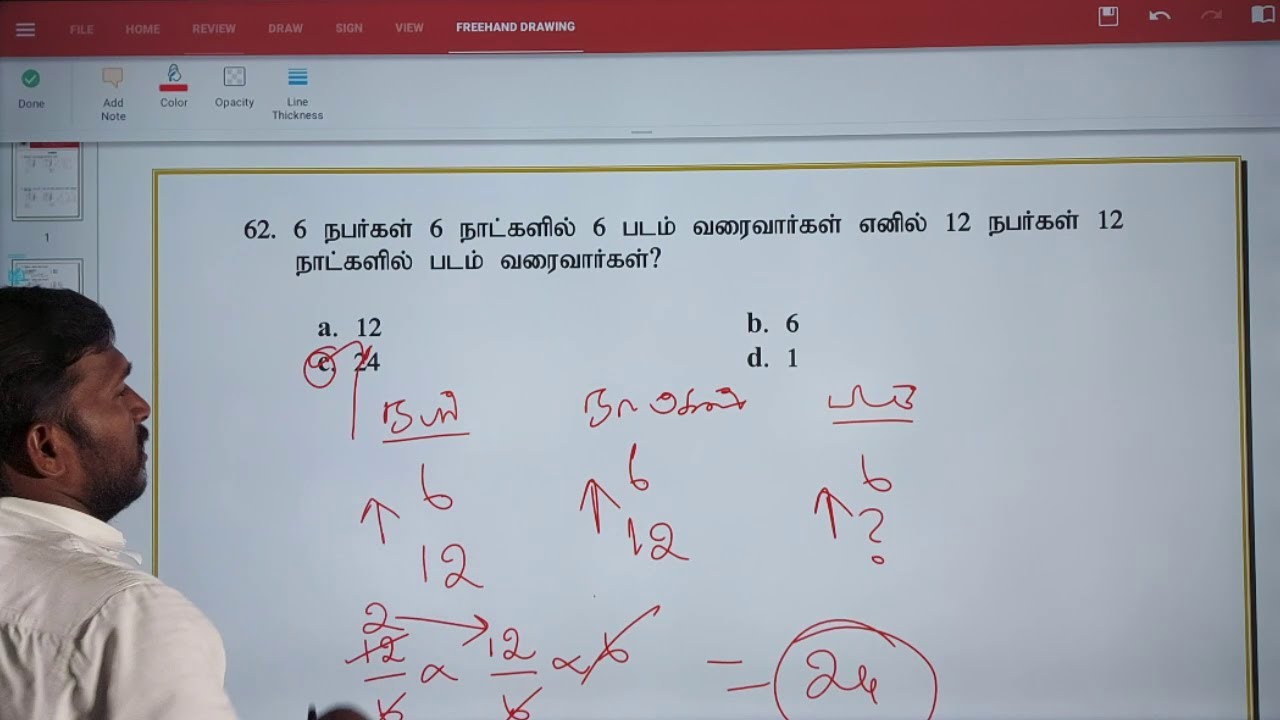 FILE HOME REVIEW DRAW SIGN VIEW FREEHAND DRAWING
Done Add Note Color Opacity Line Thickness
1
62. 6 நபர்கள் 6 நாட்களில் 6 படம் வரைவார்கள் எனில் 12 நபர்கள் 12
நாட்களில் படம் வரைவார்கள்?
a. 12 b. 6
c. 24 d. 1
நபர் நாட்கள் படம்
6 6 6
12 12 ?
2
12 12 6 = 24
6 6